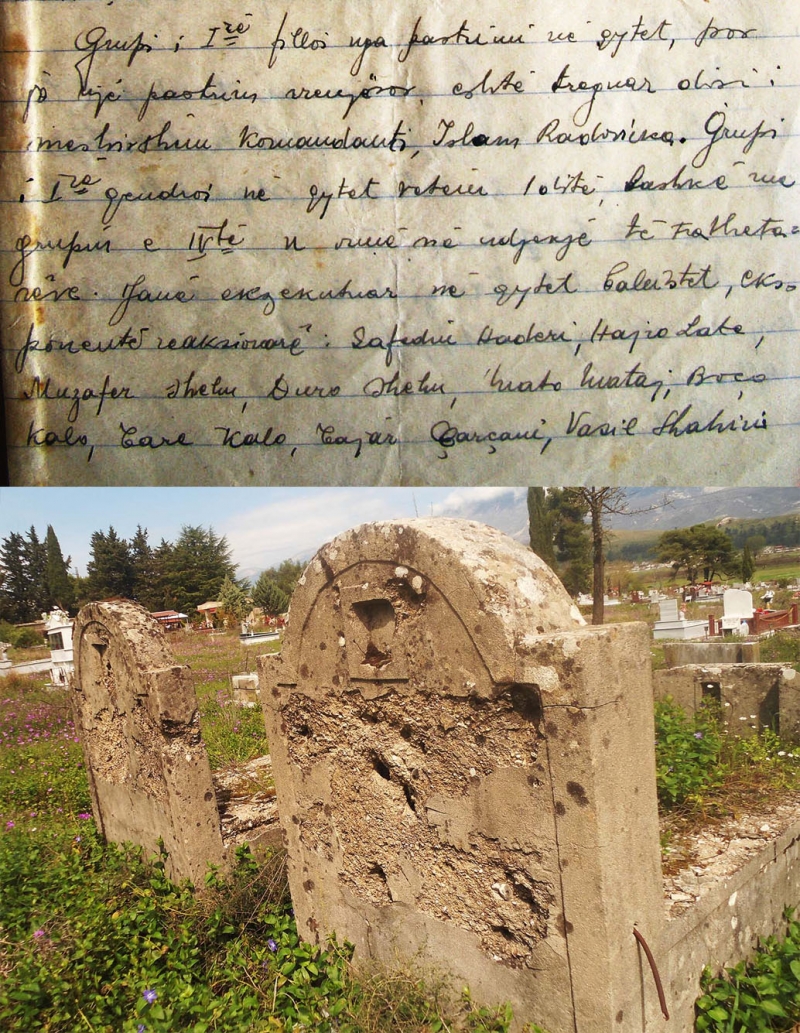 Grupi i I-rë filloi nga pastrimi në qytet, por
jo një pastrim rrenjësor, është treguar disi i
mëshirshim Komandanti, Islam Radovicka. Grupi
i I-rë qendroi në qytet vetëm 1 ditë, bashkë me
grupin e IV-të në ndjekje të tratheta=
rëve. Janë ekzekutuar në qytet balistët, eks=
ponentë reaksionarë: Safedin Haderi, Hajro Labe,
Muzafer Shehu, Duro Shehu, Mato Mataj, Boço
Kalo, Care Kalo, Bajar Çarçani, Vasil Shahini